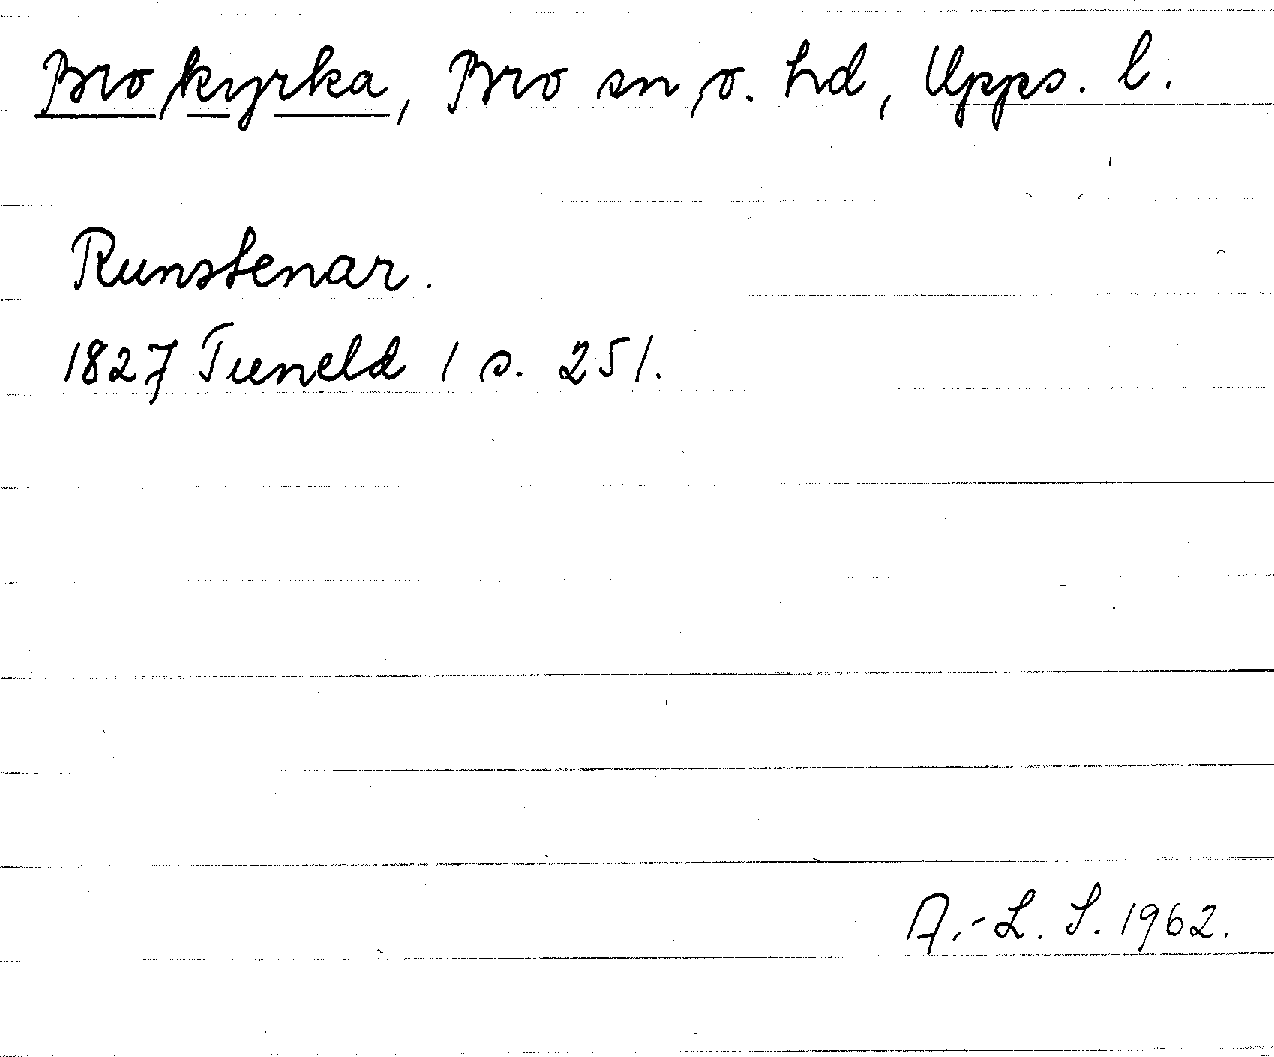 Bro kyrka, Bro sn o. hd, Upps. l.
Runstenar.
1827 Tuneld 1 s. 251.
A.-L. S. 1962.